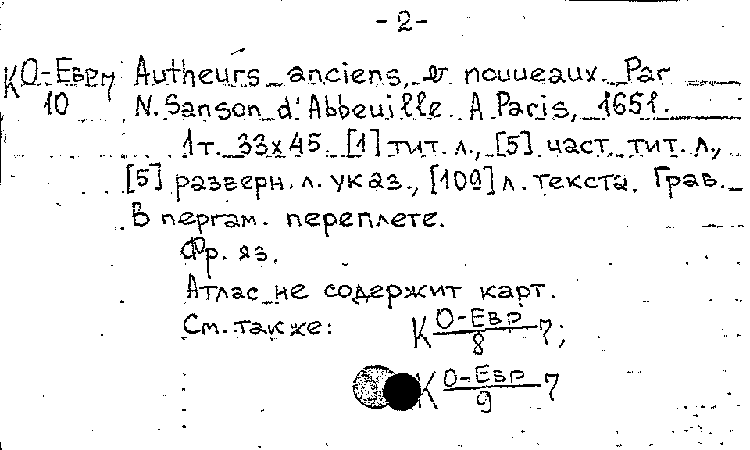 - 2 -
К О-Евр/10 7 Autheurs anciens, et nouueaux. Par
N. Sanson d'Abbeuille. A Paris, 1651.
1 т. 33х45. [1] тит. л., [5] част. тит. л.,
[5] разверн. л. указ., [109] л. текста. Грав.
В пергам. переплете.
Фр. яз.
Атлас не содержит карт.
См. также: К О-Евр/8 7;
К О-Евр/9 7